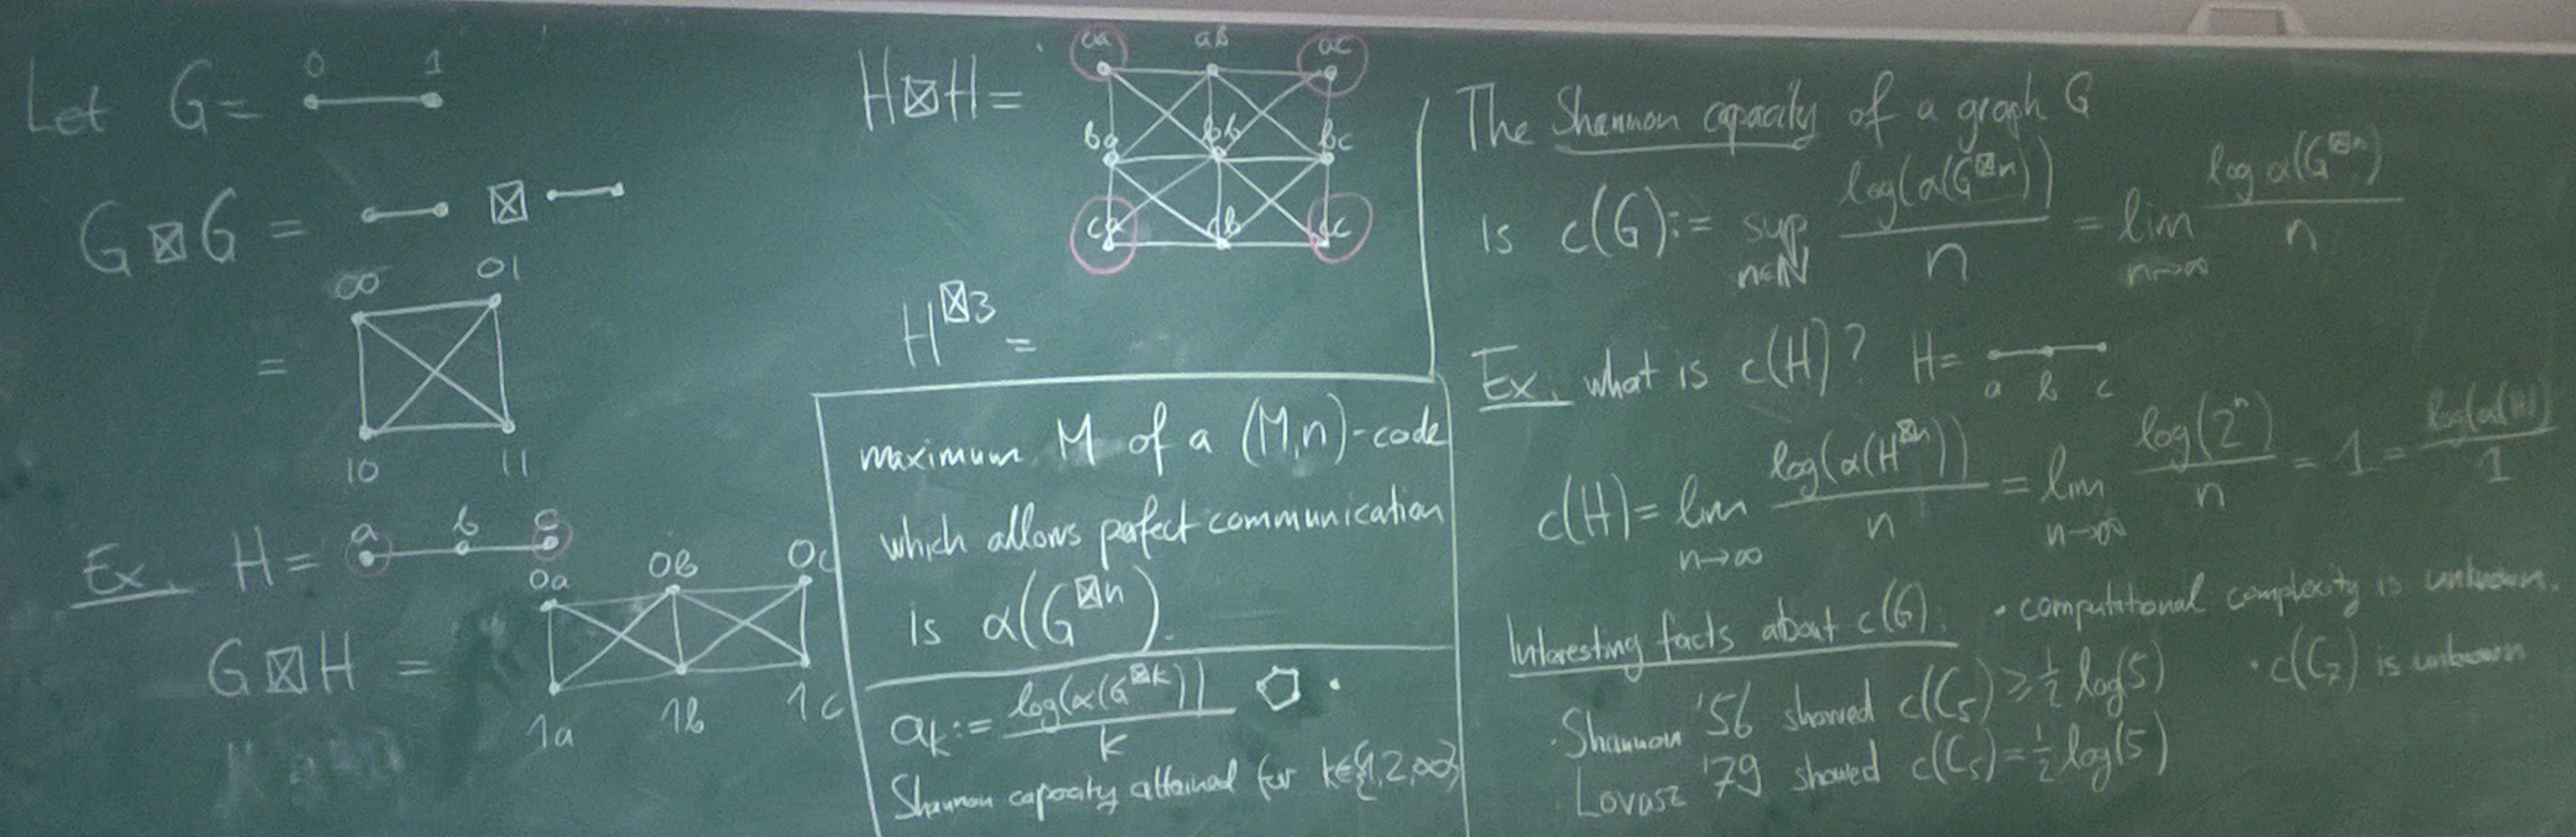 Let G = 0 1
G ⊠ G = ⊠
= 00 01
10 11
Ex. H = a b c
G ⊠ H =
0a 0b 0c
1a 1b 1c
H ⊠ H =
aa ab ac
ba bb bc
ca cb cc
H^{⊠3} =
maximum M of a (M,n)-code
which allows perfect communication
is α(G^{⊠n}).
a_k := log(α(G^{⊠k})) / k
Shannon capacity attained for k∈{1,2,∞}
The Shannon capacity of a graph G
is c(G) := sup_{n∈ℕ} log(α(G^{⊠n})) / n = lim_{n→∞} log α(G^{⊠n}) / n
Ex. what is c(H)? H = a b c
c(H) = lim_{n→∞} log(α(H^{⊠n})) / n = lim_{n→∞} log(2^n) / n = 1 = log(α(H)) / 1
Interesting facts about c(G):
· computational complexity is unknown.
· Shannon '56 showed c(C_5) ≥ 1/2 log(5)
· c(C_7) is unkown
· Lovasz '79 showed c(C_5) = 1/2 log(5)